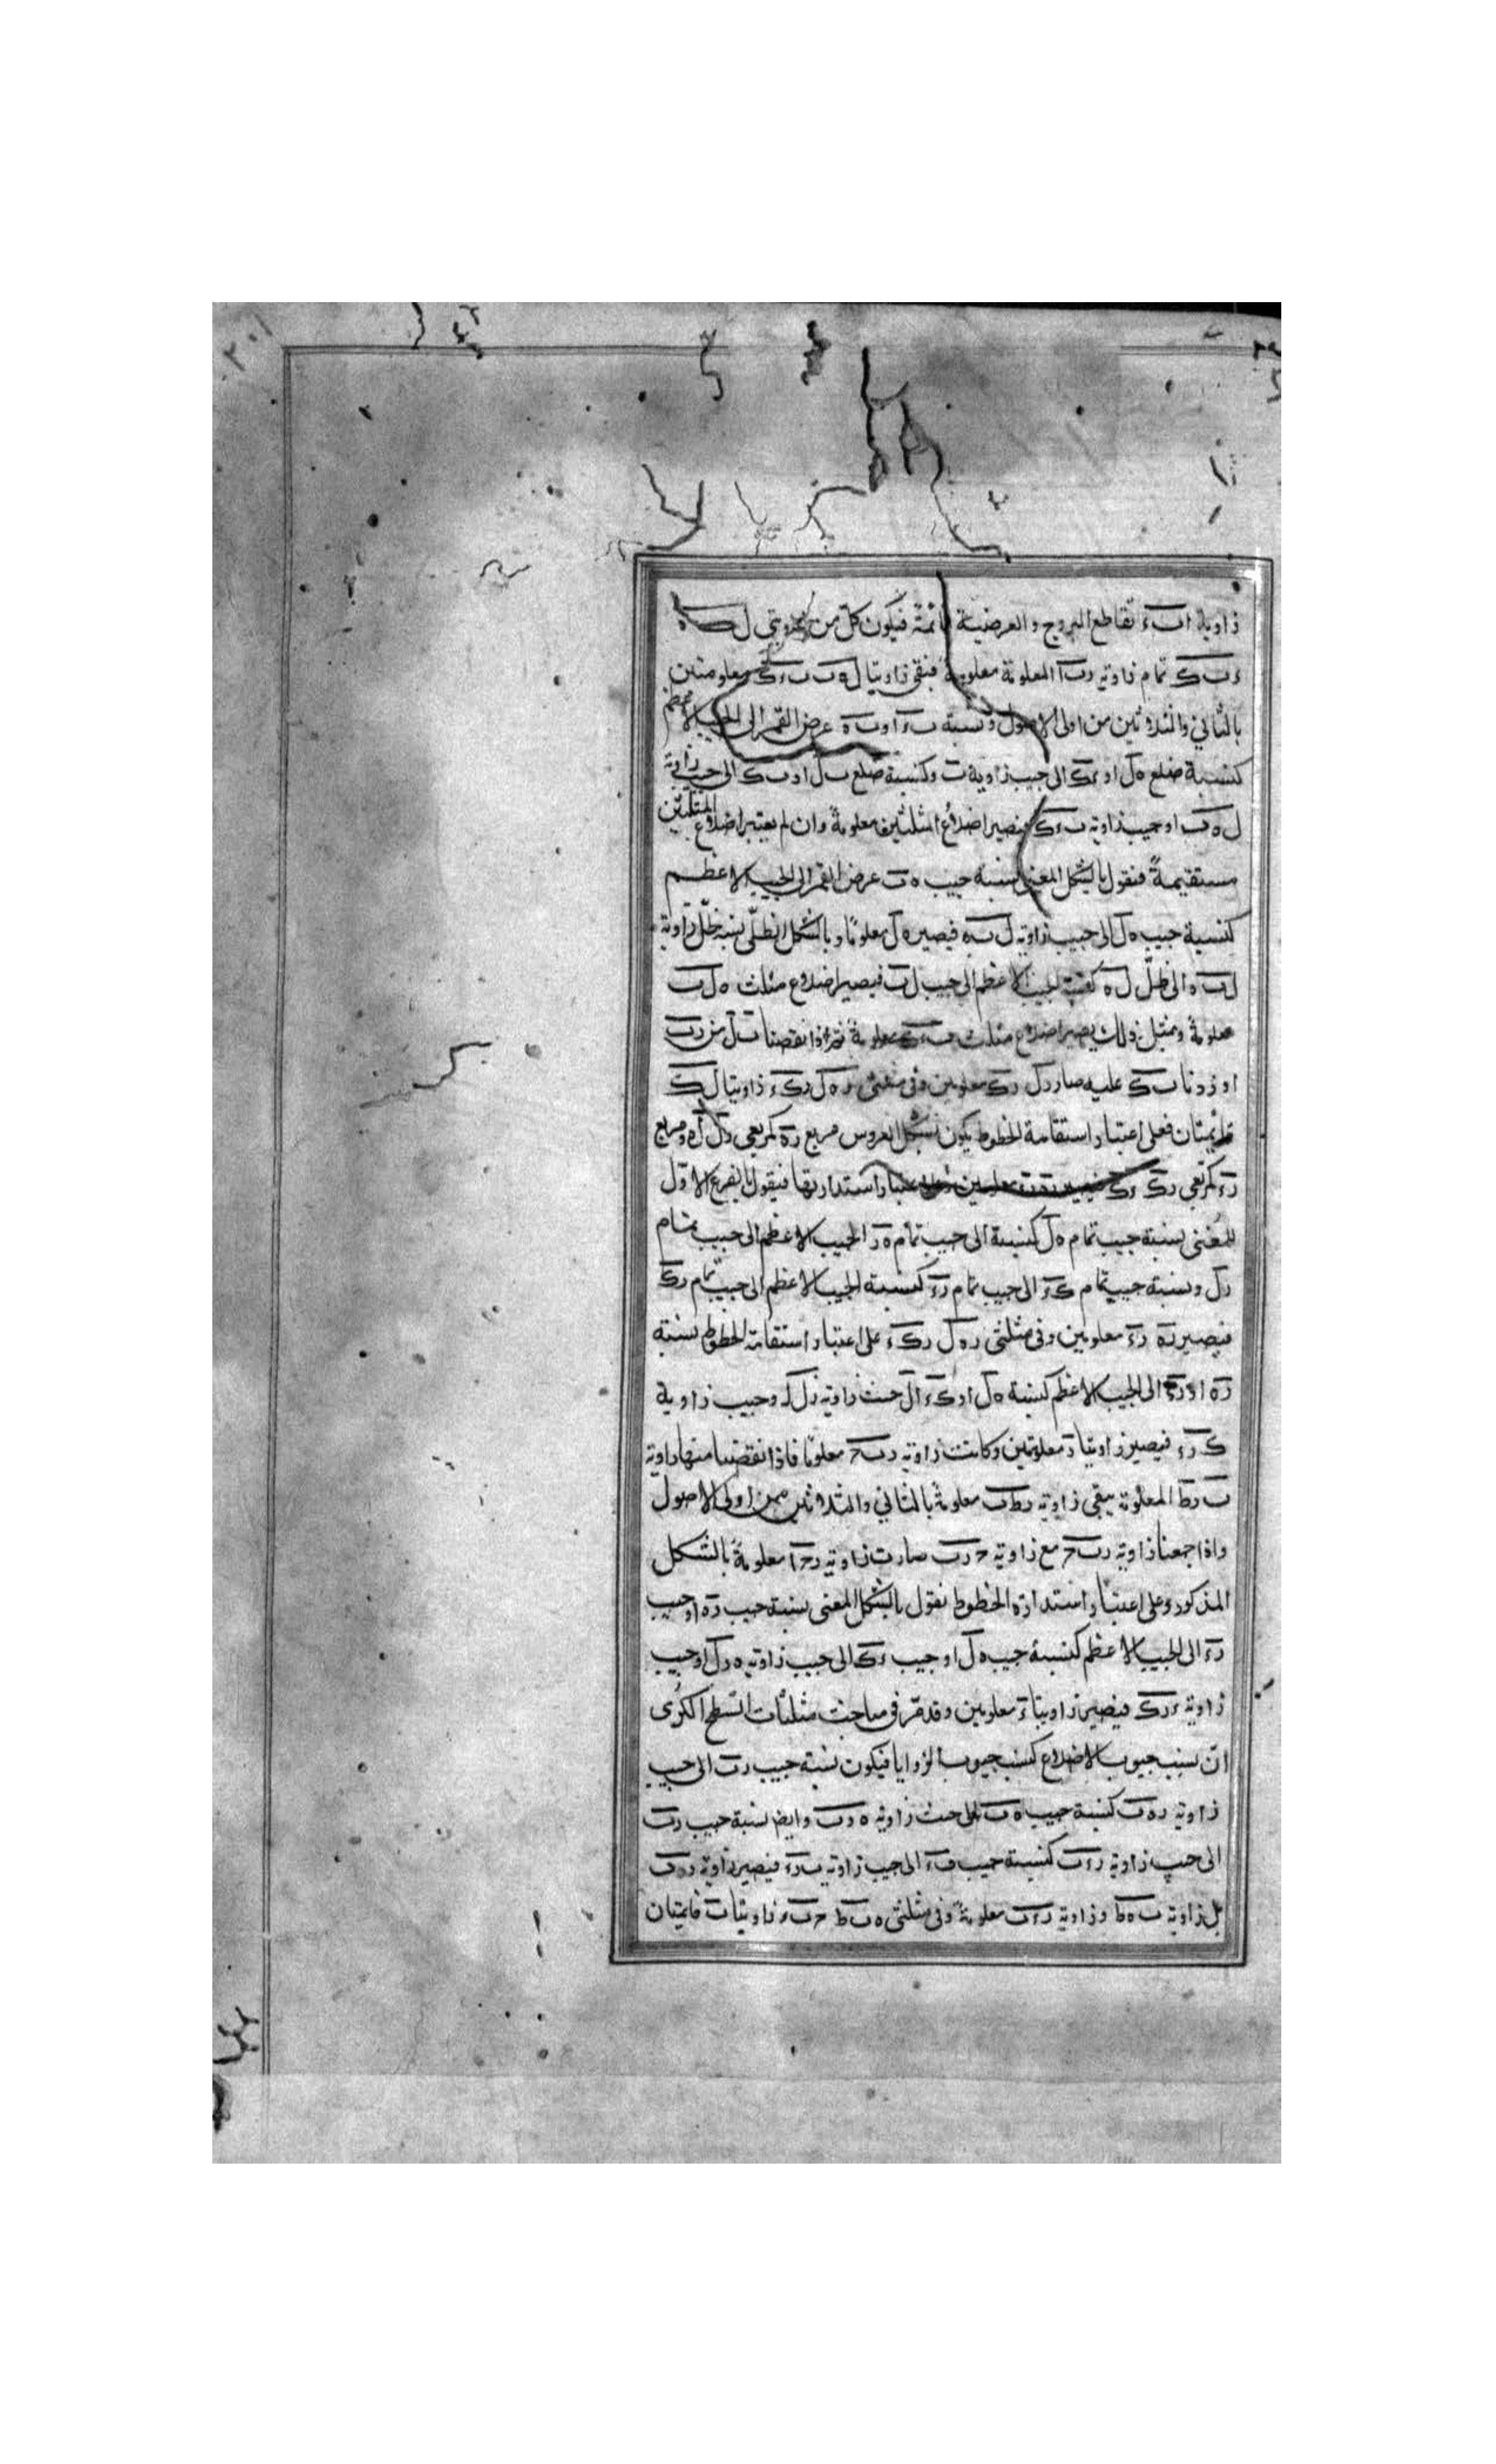 زاوية ا ب ء تقاطع البروج والعرضية قائمة فيكون كل من زاويتى ل ب ه
ء ب ك تمام زاوية ر ب ا المعلومة معلومة فبقى زاويتا ل ه ب ب ء ك معلومتين
بالثانى والثلاثين من اولى الاصول ونسبة ب ء او ب ه عرض القمر الى الجيب الاعظم
كنسبة ضلع ه ل او ء ك الى جيب زاوية ب وكنسبة ضلع ب ل او ب ك الى جيب زاوية
ل ه ب او جيب زاوية ب ء ك فيصير اضلاع المثلثين معلومة وان لم يعتبر اضلاع المثلثين
مستقيمة فنقول بالشكل المغنى نسبة جيب ه ب عرض القمر الى الجيب الاعظم
كنسبة جيب ه ل الى جيب زاوية ل ب ه فيصير ه ل معلوما وبالشكل الظلّى نسبة ظلّ زاوية
ل ب ه الى ظلّ ل ه كنسبة الجيب الاعظم الى جيب ل ب فيصير اضلاع مثلث ه ل ب
معلومة وبمثل ذلك يصير اضلاع مثلث ب ء ك معلومة ثم اذا نقصنا ب ل من ر ب
او زدنا ب ك عليه صار ر ل ر ك معلومين وفى مثلثى ر ه ل ر ك ء زاويتا ل ك
قائمتان فعلى اعتبار استقامة الخطوط يكون بشكل العروس مربع ر ه كمربعى ر ل ل ه ومربع
ر ء كمربعى ر ك ء ك فيصير ر ه ر ء معلومين وعلى اعتبار استدارتها فنقول بالفرع الاول
للمغنى نسبة جيب تمام ه ل كنسبة الى جيب تمام ه ر الجيب الاعظم الى جيب تمام
ر ل ونسبة جيب تمام ك ء الى جيب تمام ر ء كنسبة الجيب الاعظم الى جيب تمام ر ك
فيصير ر ه ر ء معلومين وفى مثلثى ر ه ل ر ك ء على اعتبار استقامة الخطوط نسبة
ر ه او ر ء الى الجيب الاعظم كنسبة ه ل او ك ء الى جيب زاوية ر ل ه وجيب زاوية
ك ر ء فيصير زاويتا ر معلومتين وكانت زاوية ر ب ح معلوما فاذا نقصنا منها زاوية
ب ر ط المعلومة يبقى زاوية ر ط ب معلومة بالثانى والثلاثين من اولى الاصول
واذا جمعنا زاوية ر ب ح مع زاوية ح ر ب صارت زاوية ر ح ا معلومة بالشكل
المذكور وعلى اعتبار استدارة الخطوط نقول بالشكل المغنى نسبة جيب ر ه او جيب
ر ء الى الجيب الاعظم كنسبة جيب ه ل او جيب ء ك الى جيب زاوية ه ر ل او جيب
زاوية ء ر ك فيصير زاويتا ر معلومين وقد مرّ فى مباحث مثلثات السطح الكرى
انّ نسب جيوب الاضلاع كنسب جيوب الزوايا فيكون نسبة جيب ر ب الى جيب
زاوية ر ه ب كنسبة جيب ه ب الى جيب زاوية ه ر ب وايضا نسبة جيب ر ب
الى جيب زاوية ر ء ب كنسبة جيب ب ء الى جيب زاوية ب ر ء فيصير زاوية ر ه ب
بل زاوية ب ه ط وزاوية ر ء ب معلومة وفى مثلثى ه ب ط ح ب ء زاويتا ب قائمتان